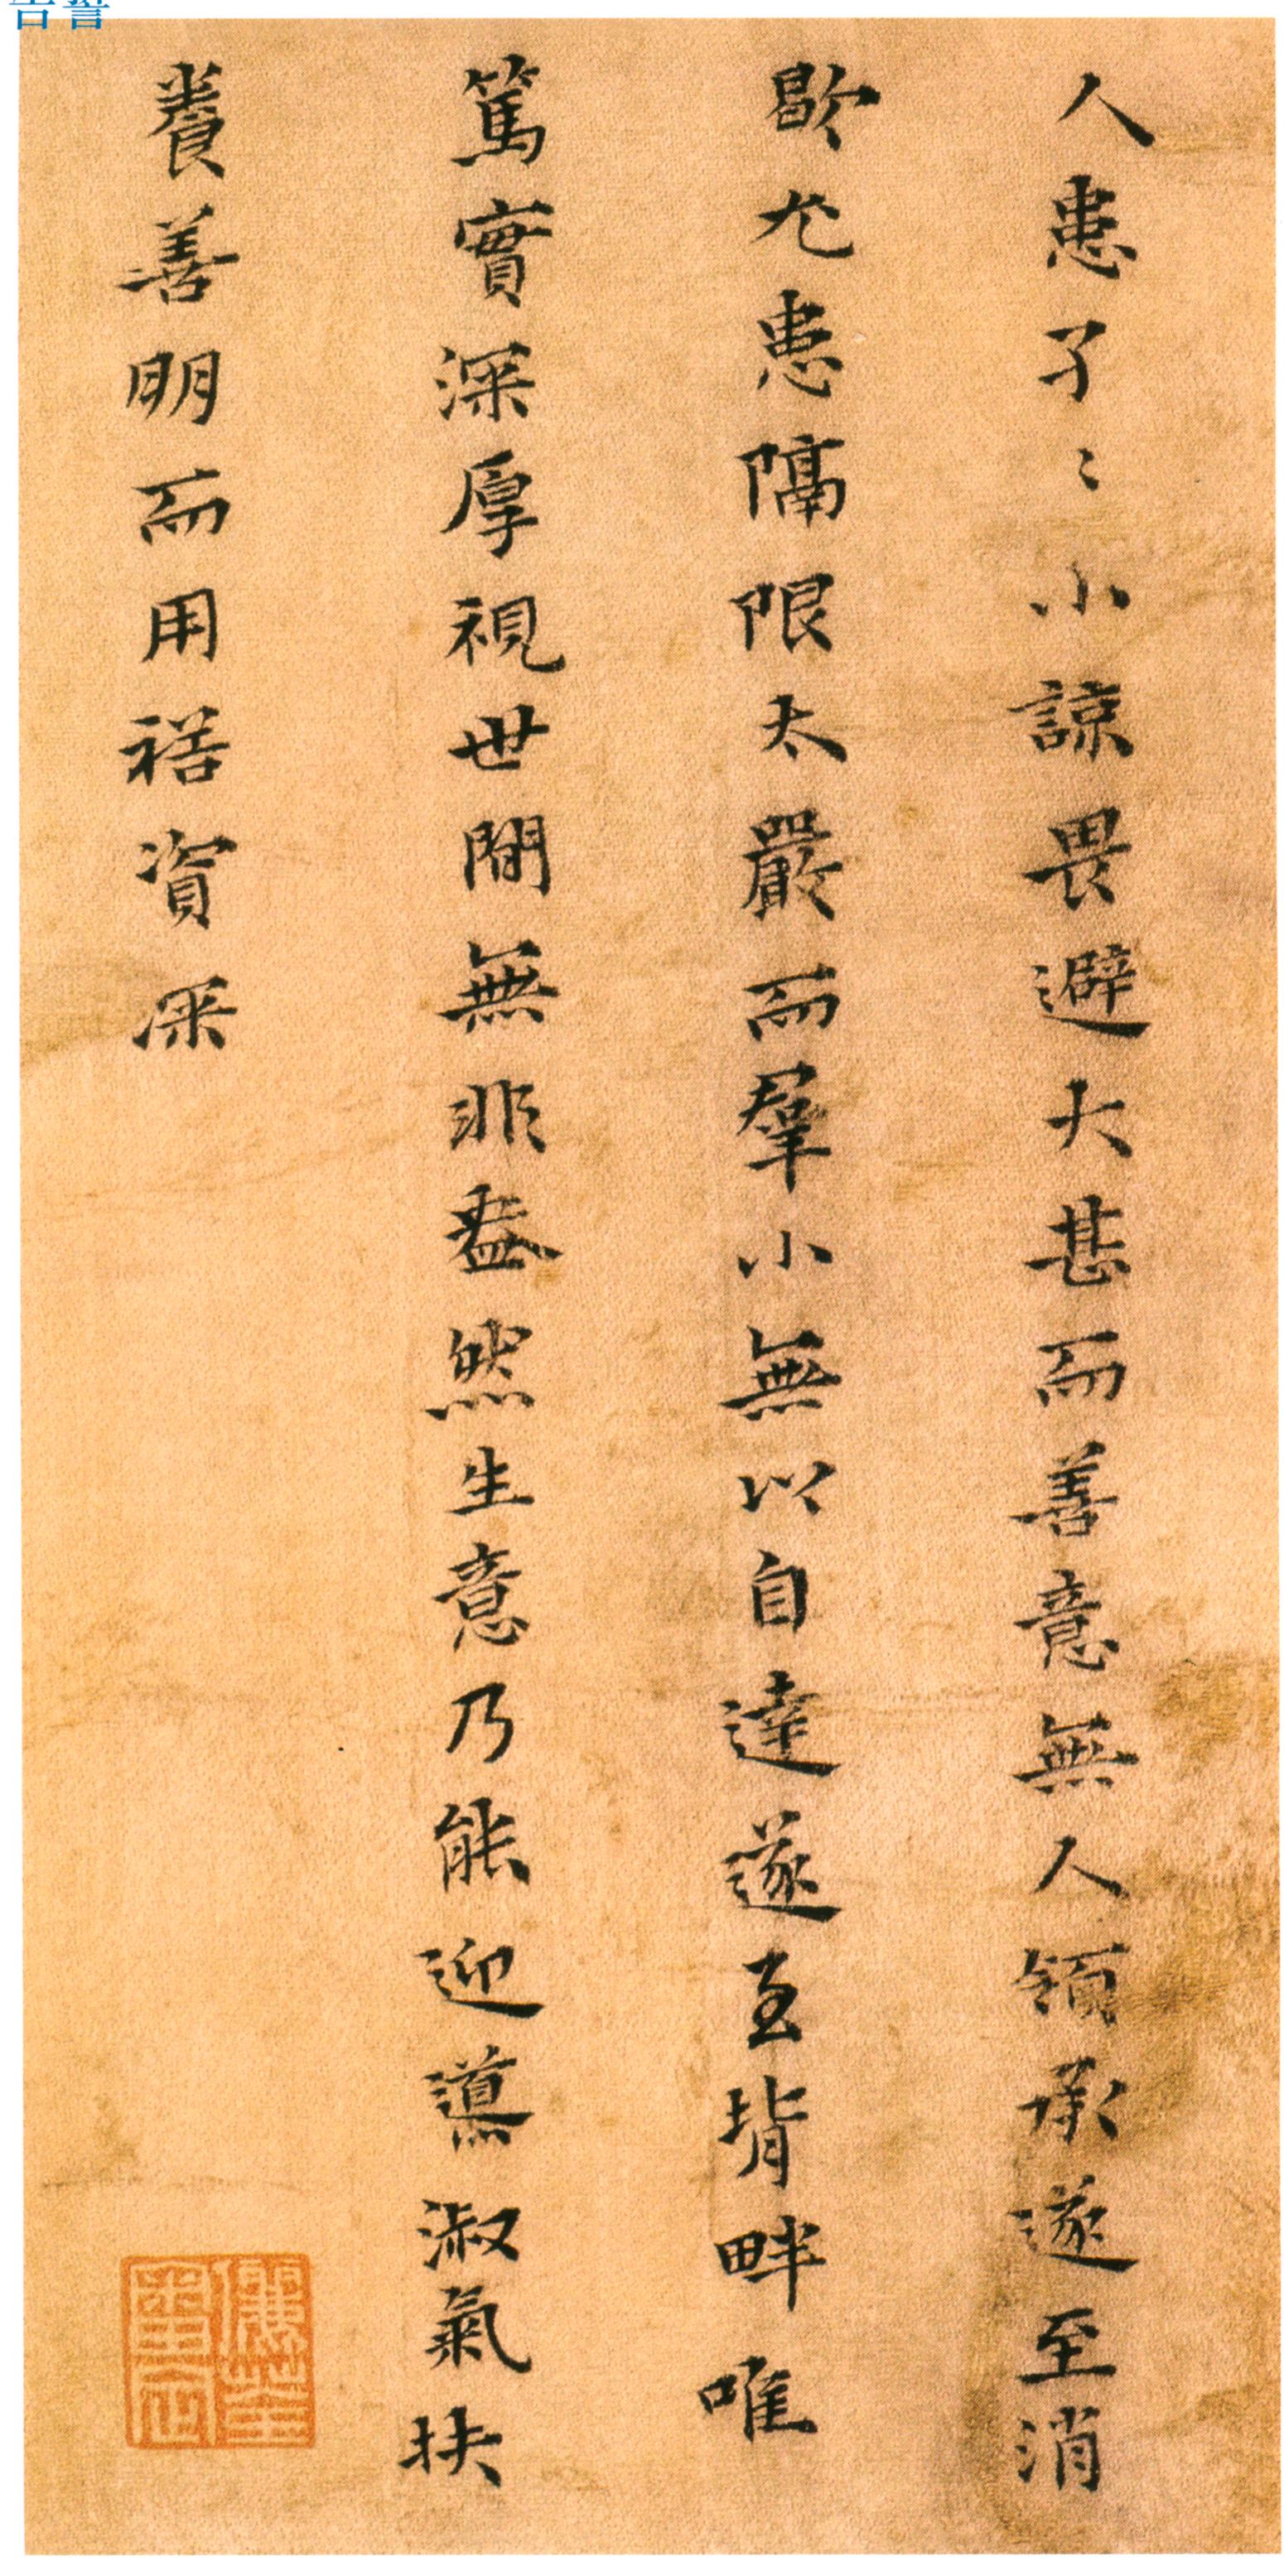 告誓
人患孑〻小諒畏避大甚而善意無人領承遂至消
歇尤患隔限太嚴而羣小無以自達遂至背畔唯
篤實深厚視世間無非盎然生意乃能迎導淑氣扶
養善明而用裕資深